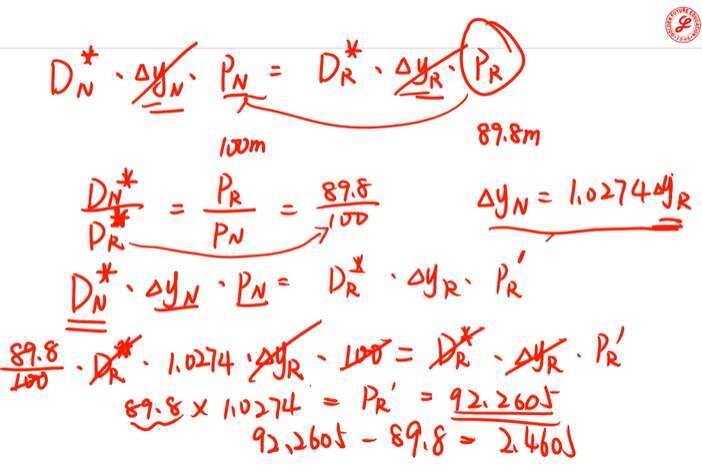 D_N* · Δy_N · P_N = D_R* · Δy_R · P_R
100m 89.8m
D_N*/D_R* = P_R/P_N = 89.8/100 Δy_N = 1.0274Δy_R
D_N* · Δy_N · P_N = D_R* · Δy_R · P_R'
89.8/100 · D_R* · 1.0274 · Δy_R · 100 = D_R* · Δy_R · P_R'
89.8 × 1.0274 = P_R' = 92.2605
92.2605 - 89.8 = 2.4605